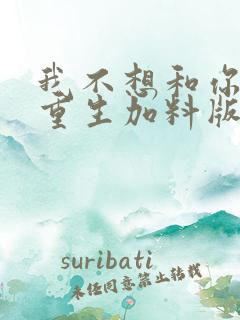 我不想和你
重生加料版
suribati
未经同意禁止转载